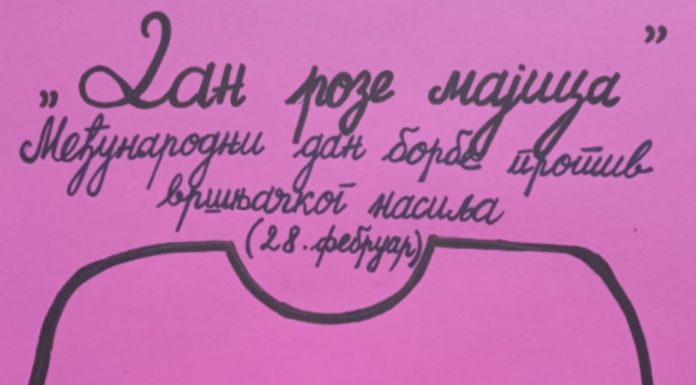 „Дан розе мајица”
Међународни дан борбе против
вршњачког насиља
(28. фебруар)